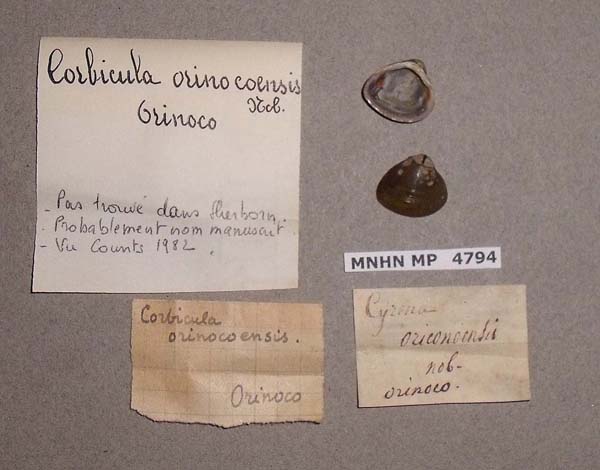 Corbicula orinocoensis
Nob.
Orinoco
- Pas trouvé dans Sherborn.
- Probablement nom manuscrit.
- Vu Counts 1982.
MNHN MP 4794
Corbicula
orinocoensis.
Orinoco
Cyrena
oriconoensis
nob-
orinoco.